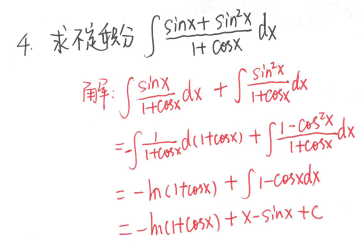 4. 求不定积分 ∫ (sinx + sin²x)/(1 + cosx) dx
解: ∫ sinx/(1+cosx) dx + ∫ sin²x/(1+cosx) dx
= -∫ 1/(1+cosx) d(1+cosx) + ∫ (1-cos²x)/(1+cosx) dx
= -ln(1+cosx) + ∫ 1-cosx dx
= -ln(1+cosx) + x - sinx + C